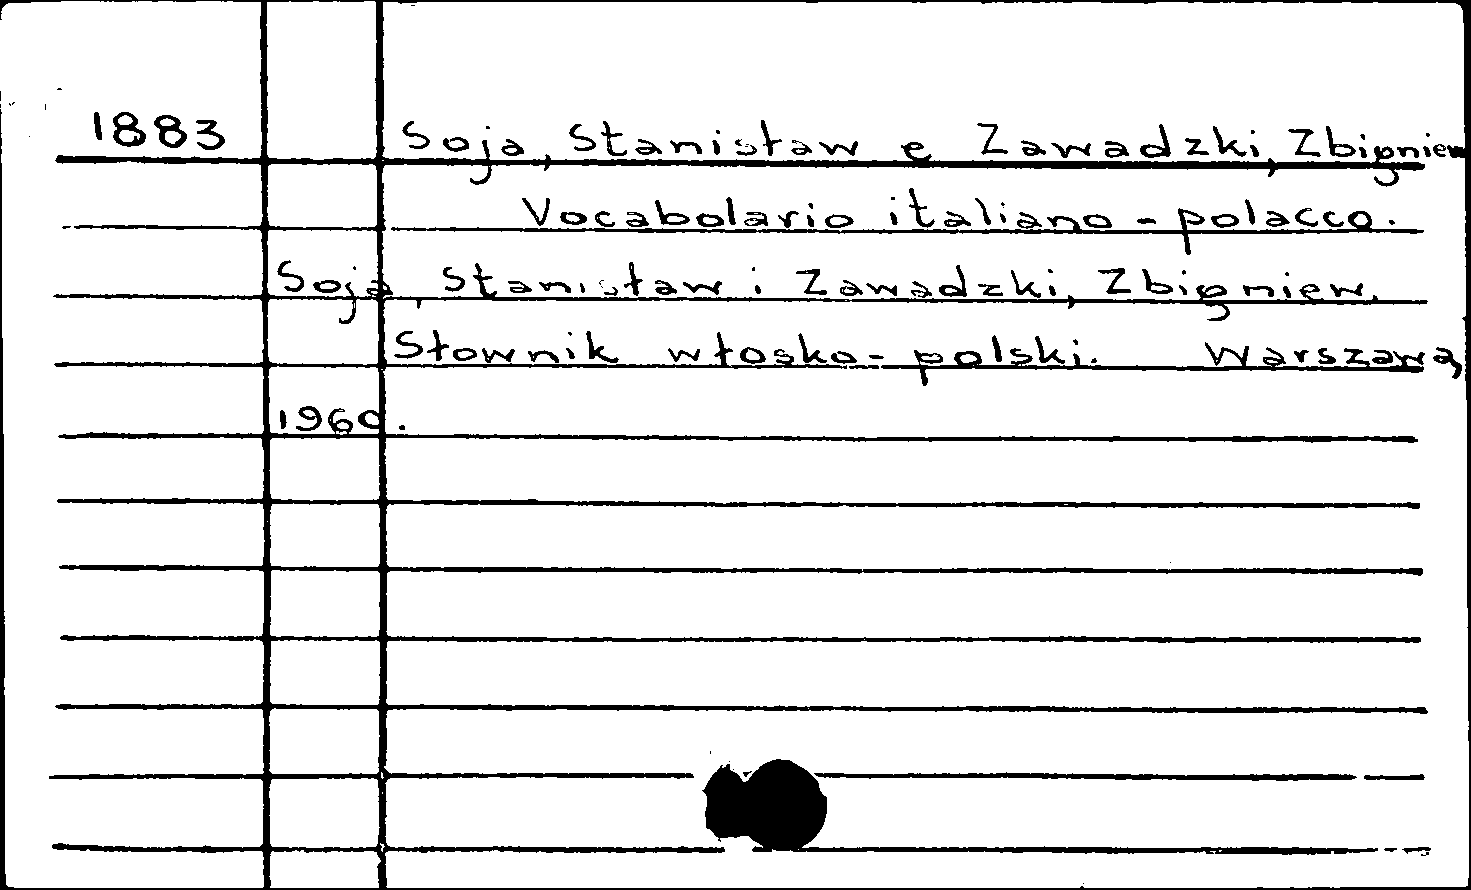 1883 Soja, Stanisław e Zawadzki, Zbigniew
Vocabolario italiano - polacco.
Soja, Stanisław i Zawadzki, Zbigniew.
Słownik włosko - polski. Warszawa,
1960.